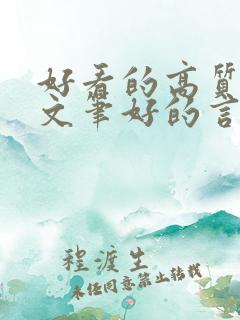 好看的高质
文笔好的言
程渡生
未经同意禁止转载